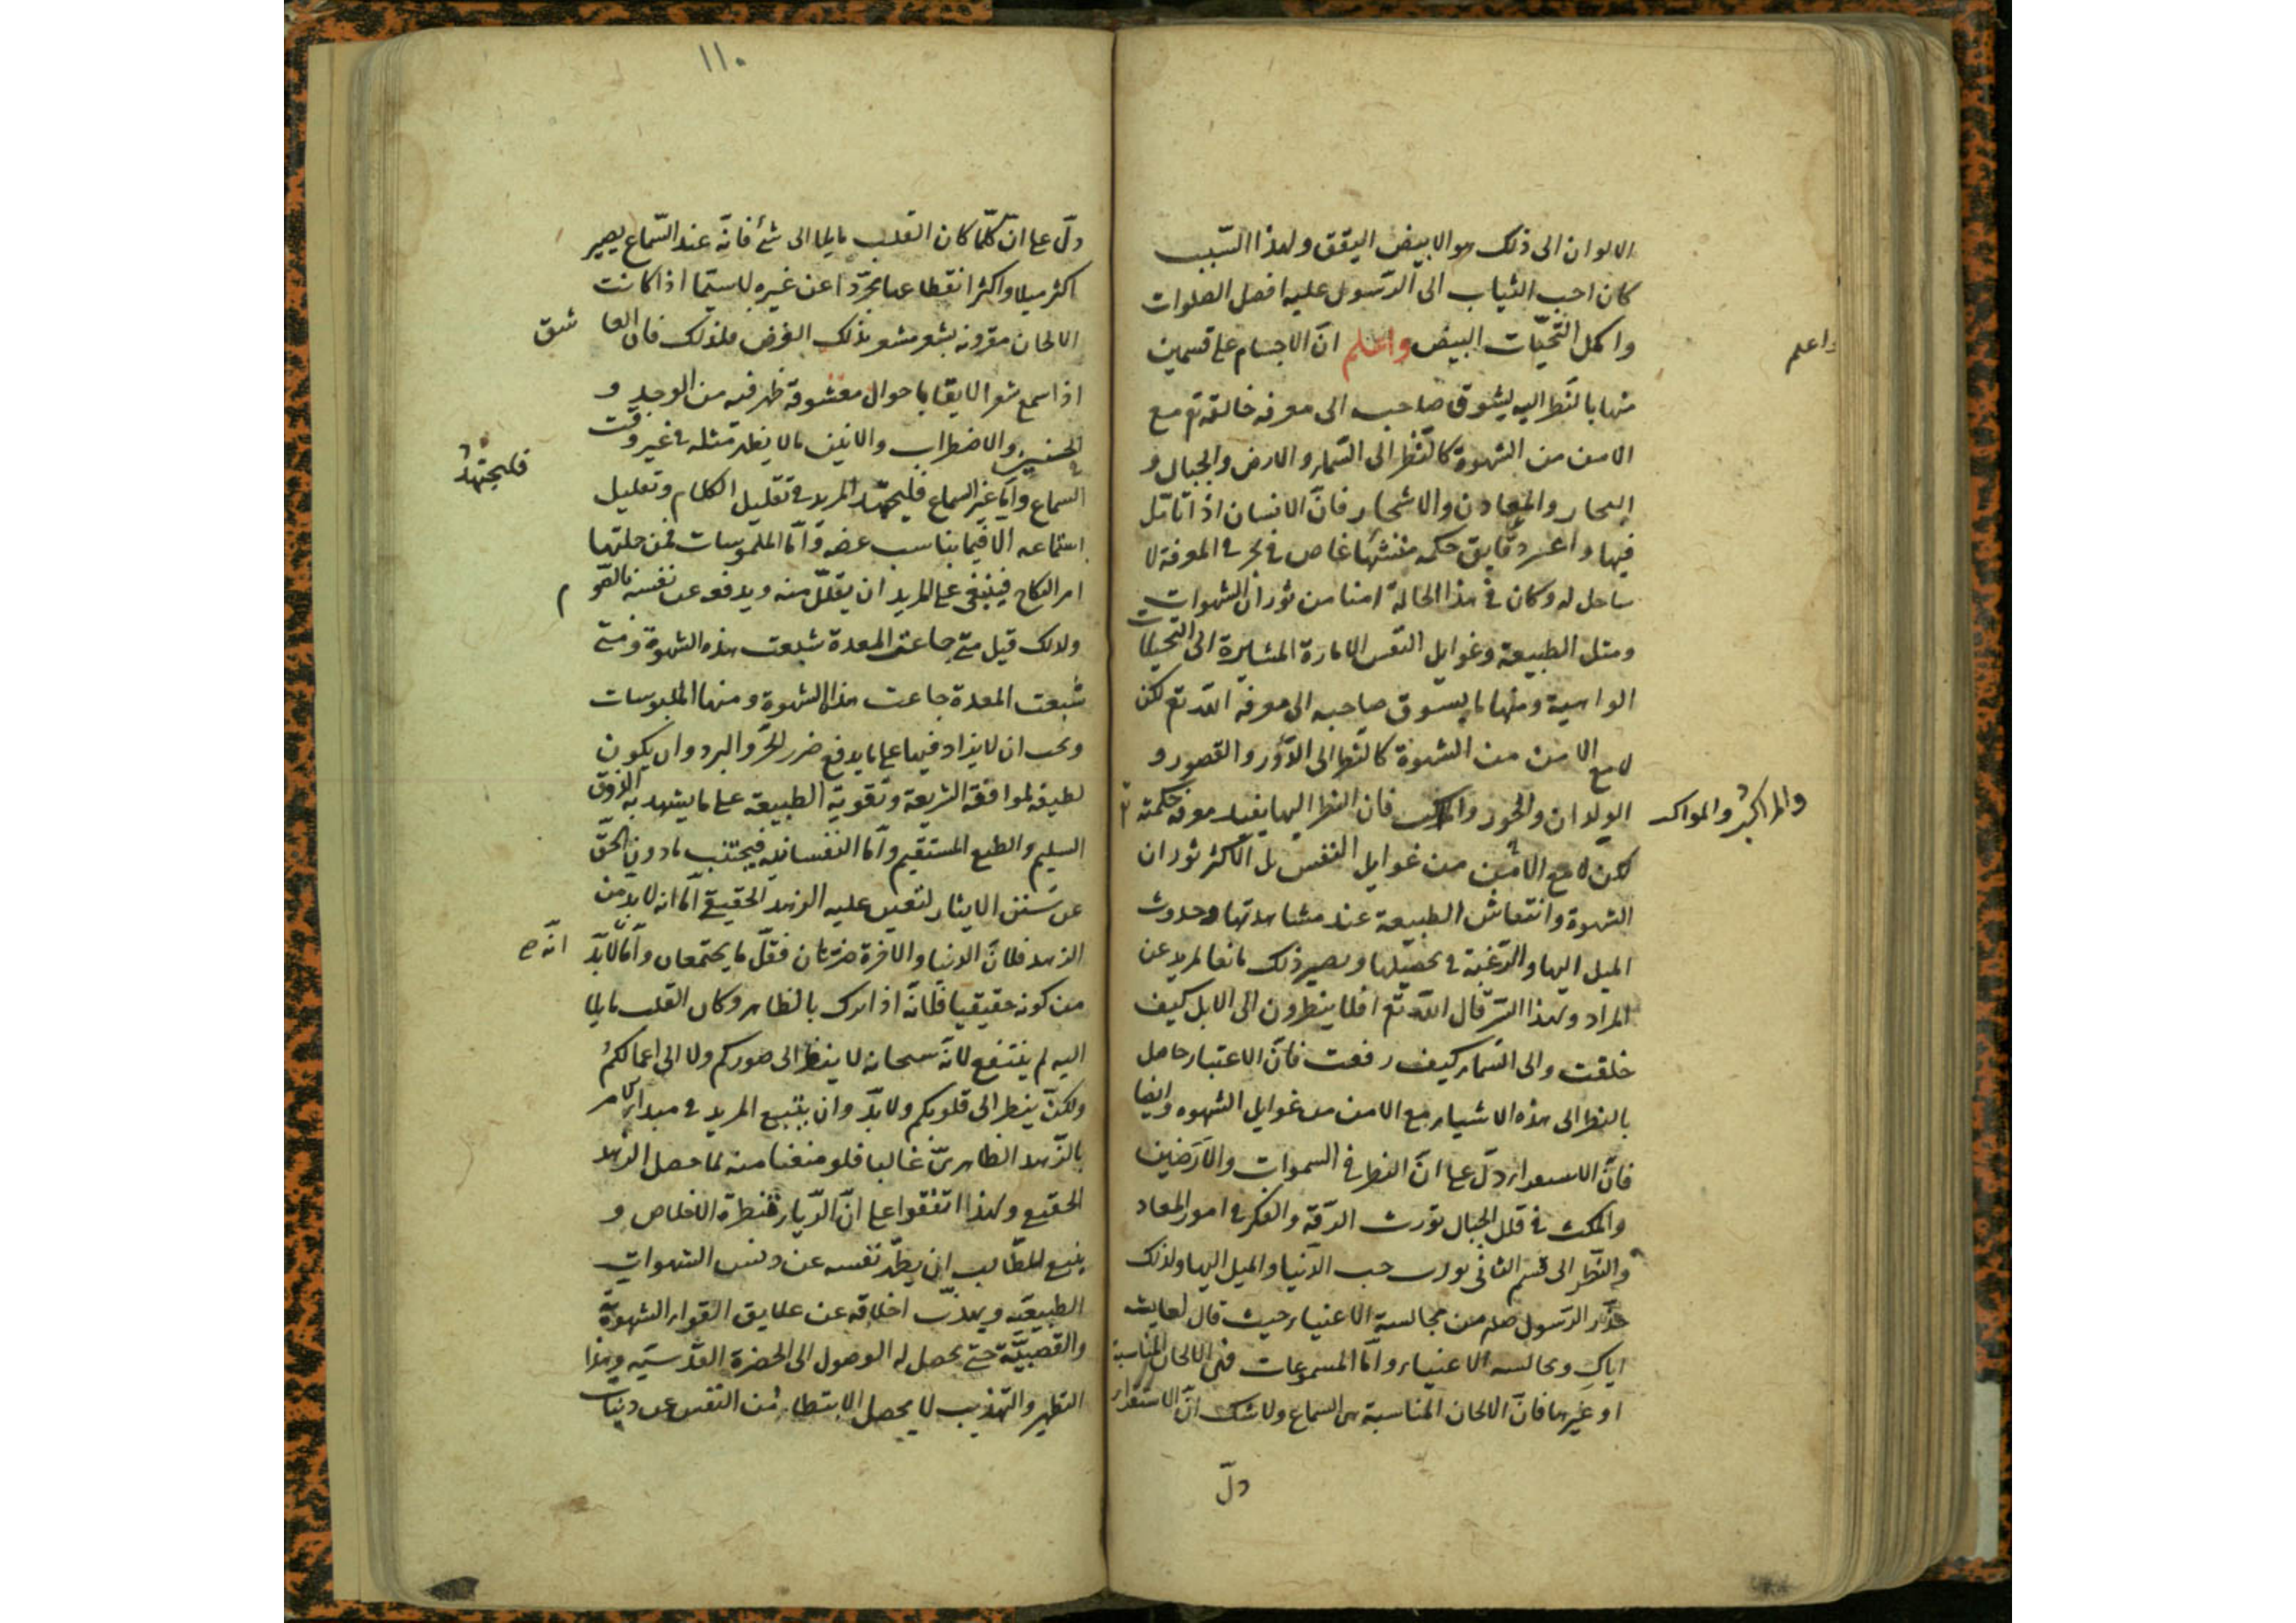 الالوان الى ذلك هو الابيض اليقق ولهذا السّبب
كان احب الثياب الى الرّسول عليه افضل الصلوات
واكمل التّحيّات البيض واعلم انّ الاجسام على قسمين
واعلم
منها ما بالنّظر اليه يشوق صاحبه الى معرفة خالقه تع مع
الامن من الشهوة كالنّظر الى السّماء والارض والجبال و
البحار والمعادن والاشجار فانّ الانسان اذا تامّل
فيها دقايق حكمة منشئها غاص في بحر المعرفة لا
ساحل له وكان في هذا الحالة امنا من ثوران الشهوات
وميل الطبيعة وغوايل النّفس الامارة المشايرة الى التخيلات
الواهية ومنها ما يسوق صاحبه الى معرفة الله تع لكن
لا مع الامن من الشهوة كالنّظر الى الدّور والقصور و
الولدان والحور والمراكب فان النظر اليها يفيد معرفة حكمته
والمراكب والمواكب
لكن لا مع الامن من غوايل النفس بل الاكثر ثوران
الشهوة وانتعاش الطبيعة عند مشاهدتها وحدوث
الميل اليها والرّغبة في تحصيلها ويصير ذلك مانعا لمريد عن
المراد ولهذا السّرّ قال الله تع افلا ينظرون الى الابل كيف
خلقت والى السّماء كيف رفعت فانّ الاعتبار حاصل
بالنظر الى هذه الاشياء مع الامن من غوايل الشهوة وايضا
فانّ الاستقراء دلّ على انّ النظر في السموات والارَضين
والمكث في قلل الجبال تورث الدقّة والفكر في امور المعاد
والنّظر الى قسم الثاني يورث حب الدّنيا والميل اليها ولذلك
حذّر الرّسول صلم من مجالسة الاغنياء حيث قال لعايشة
اياكِ ومجالسة الاغنياء وامّا المسموعات فهي الالحان المناسبة
او غيرها فانّ الالحان المناسبة هي السماع ولا شك انّ الاستقراء
دلّ
١١٠
دلّ على انّ كلّما كان القلب مايلا الى شئ فانّه عند السّماع يصير
اكثر ميلا واكثر انقطاعا تجرّدا عن غيره لا سيّما اذا كانت
الالحان مقرونة بشعر مشعر بذلك الغرض فلذلك فان العاشق
اذا سمع شعرا لايقا باحوال معشوقه ظهر فيه من الوجد و
الحنين والاضطراب والانين ما لا يظهر مثله في غير وقت
السماع وامّا غير السماع فليجتهد المريد في تقليل الكلام وتعليل
فليجتهد
استماعه الا فيما يناسب غرضه وامّا الملموسات فمن جملتها
امر النكاح فينبغي على المريد ان يقلّل منه ويدفع عن نفسه بالصّوم
ولذلك قيل متى جاعت المعدة شبعت هذه الشهوة ومتى
شبعت المعدة جاعت هذا الشهوة ومنها الملبوسات
ويجب ان لا يزاد فيها على ما يدفع ضرر الحرّ والبرد وان يكون
لطيفة لموافقة الشريعة وتقوية الطبيعة على ما يشهد به الذوق
السليم والطبع المستقيم وامّا النفسانية فيجتنب ما دون الحقّ
عن سنن الايثار لتعين عليه الزهد الحقيقي امّا انه لا بدّ من
الزهد فلانّ الدنيا والاخرة ضرّتان فقلّ ما يجتمعان وامّا لا بدّ
انّه صح
من كونه حقيقيا فلانّه اذا ترك بالظاهر وكان القلب مايلا
اليه لم ينتفع لانّه سبحانه لا ينظر الى صوركم ولا الى اعمالكم
ولكنّ ينظر الى قلوبكم ولا بدّ وان يتبع المريد في مبدا الامر
بالزّهد الظاهريّ غالبا فلو منعنا منه لما حصل الزهد
الحقيقي ولهذا اتفقوا على انّ الرّياء قنطرة الاخلاص و
ينبغي للطّالب ان يطهّر نفسه عن دنس الشهوات
الطبيعيّة ويهذّب اخلاقه عن علايق القواء الشهويّة
والغضبيّة حتى يحصل له الوصول الى الحضرة القدّسيّة وهذا
التطهير والتهذيب لا يحصل الا بتطهير النفس عن